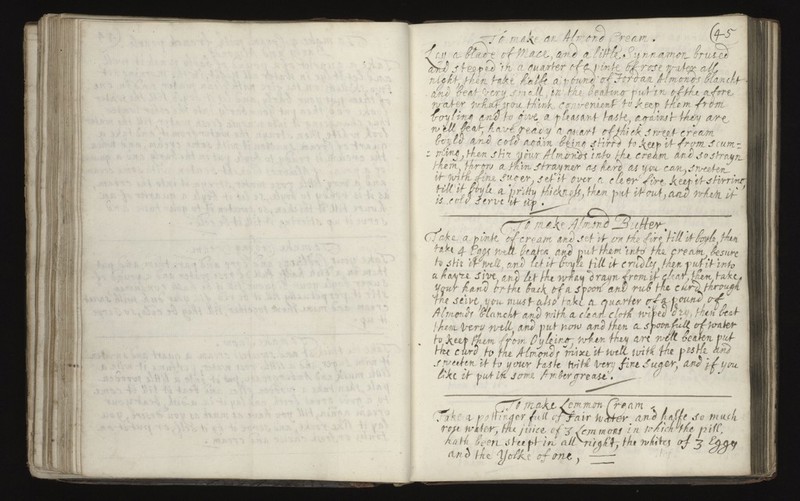 (45
To make an Almond Cream.
Lay a blade of Mace, and a little Synnamon brused
and steeped in a quarter of a pinte of rose water all
night, then take halfe a pound of Jordan Almonds blancht
and beat very small, in the beating put in of the afore
water what you think convenient to keep them from
boyling and to give a pleasant taste, against they are
well beat, have ready a quart of thick sweet cream
boyld and cold again being stirrd to keep it from scum=
=ming, then stir your Almonds into the cream and so strayn
them, throw a thin strayner as hard as you can, sweeten
it with fine Suger, set it over a cleer fire keep it stirring,
till it boyle a pritty thickness, then put it out, and when it
is cold serve it up.
To make Almond Butter
Take a pinte of cream and set it on the fire, till it boyle, then
take 4 Eggs well beaten and put them into the cream, besure
to stir it well, and let it boyle till it crudly, then put it into
a hayre sive, and let the whay drayn from it clear, then, take
your hand or the back of a spoon and rub the curd through
the seive, you must also take a quarter of a pound of
Almonds blancht and with a clean cloth wiped dry, then beat
them very well, and put now and then a spoonfull of water
to keep them from Oyleing, when they are well beaten put
the curd to the Almonds mixe it well with the pestle and
sweeten it to your taste with very fine Suger, and if you
like it put in some Ambergrease.
To make Lemmon Cream
Take a pottinger full of Fair water, and halfe so much
rose water, the juice of 3 Lemmons in which the pill,
hath been steept in all night, the whites of 3 Eggs
and the Yolke of one,